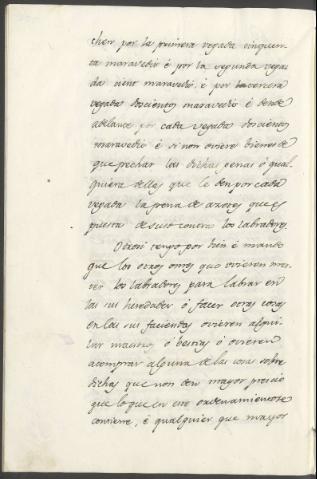 cher, por la primera vegada cinquen-
ta maravedis é por la segunda vega-
da cient maravedis, é por la tercera
vegada doscientos maravedis é dende
adelante por cada vegada doscientos
maravedis é si non oviere bienes de
que pechar las dichas penas ó qual-
quiera dellas que le den por cada
vegada la pena de azotes que es
puesta de suso contra los labradores.
Otrosi tengo por bien é mando
que los otros omes que ovieren me-
ter los labradores para labrar en
las sus heredades ó facer otras cosas
en las sus faciendas ovieren alqui-
lar mazos, ó bestias ó ovieren
a comprar alguna de las cosas sobre
dichas que non den mayor precio
que lo que en este ordenamiento se
contiene, é qualquier que mayor